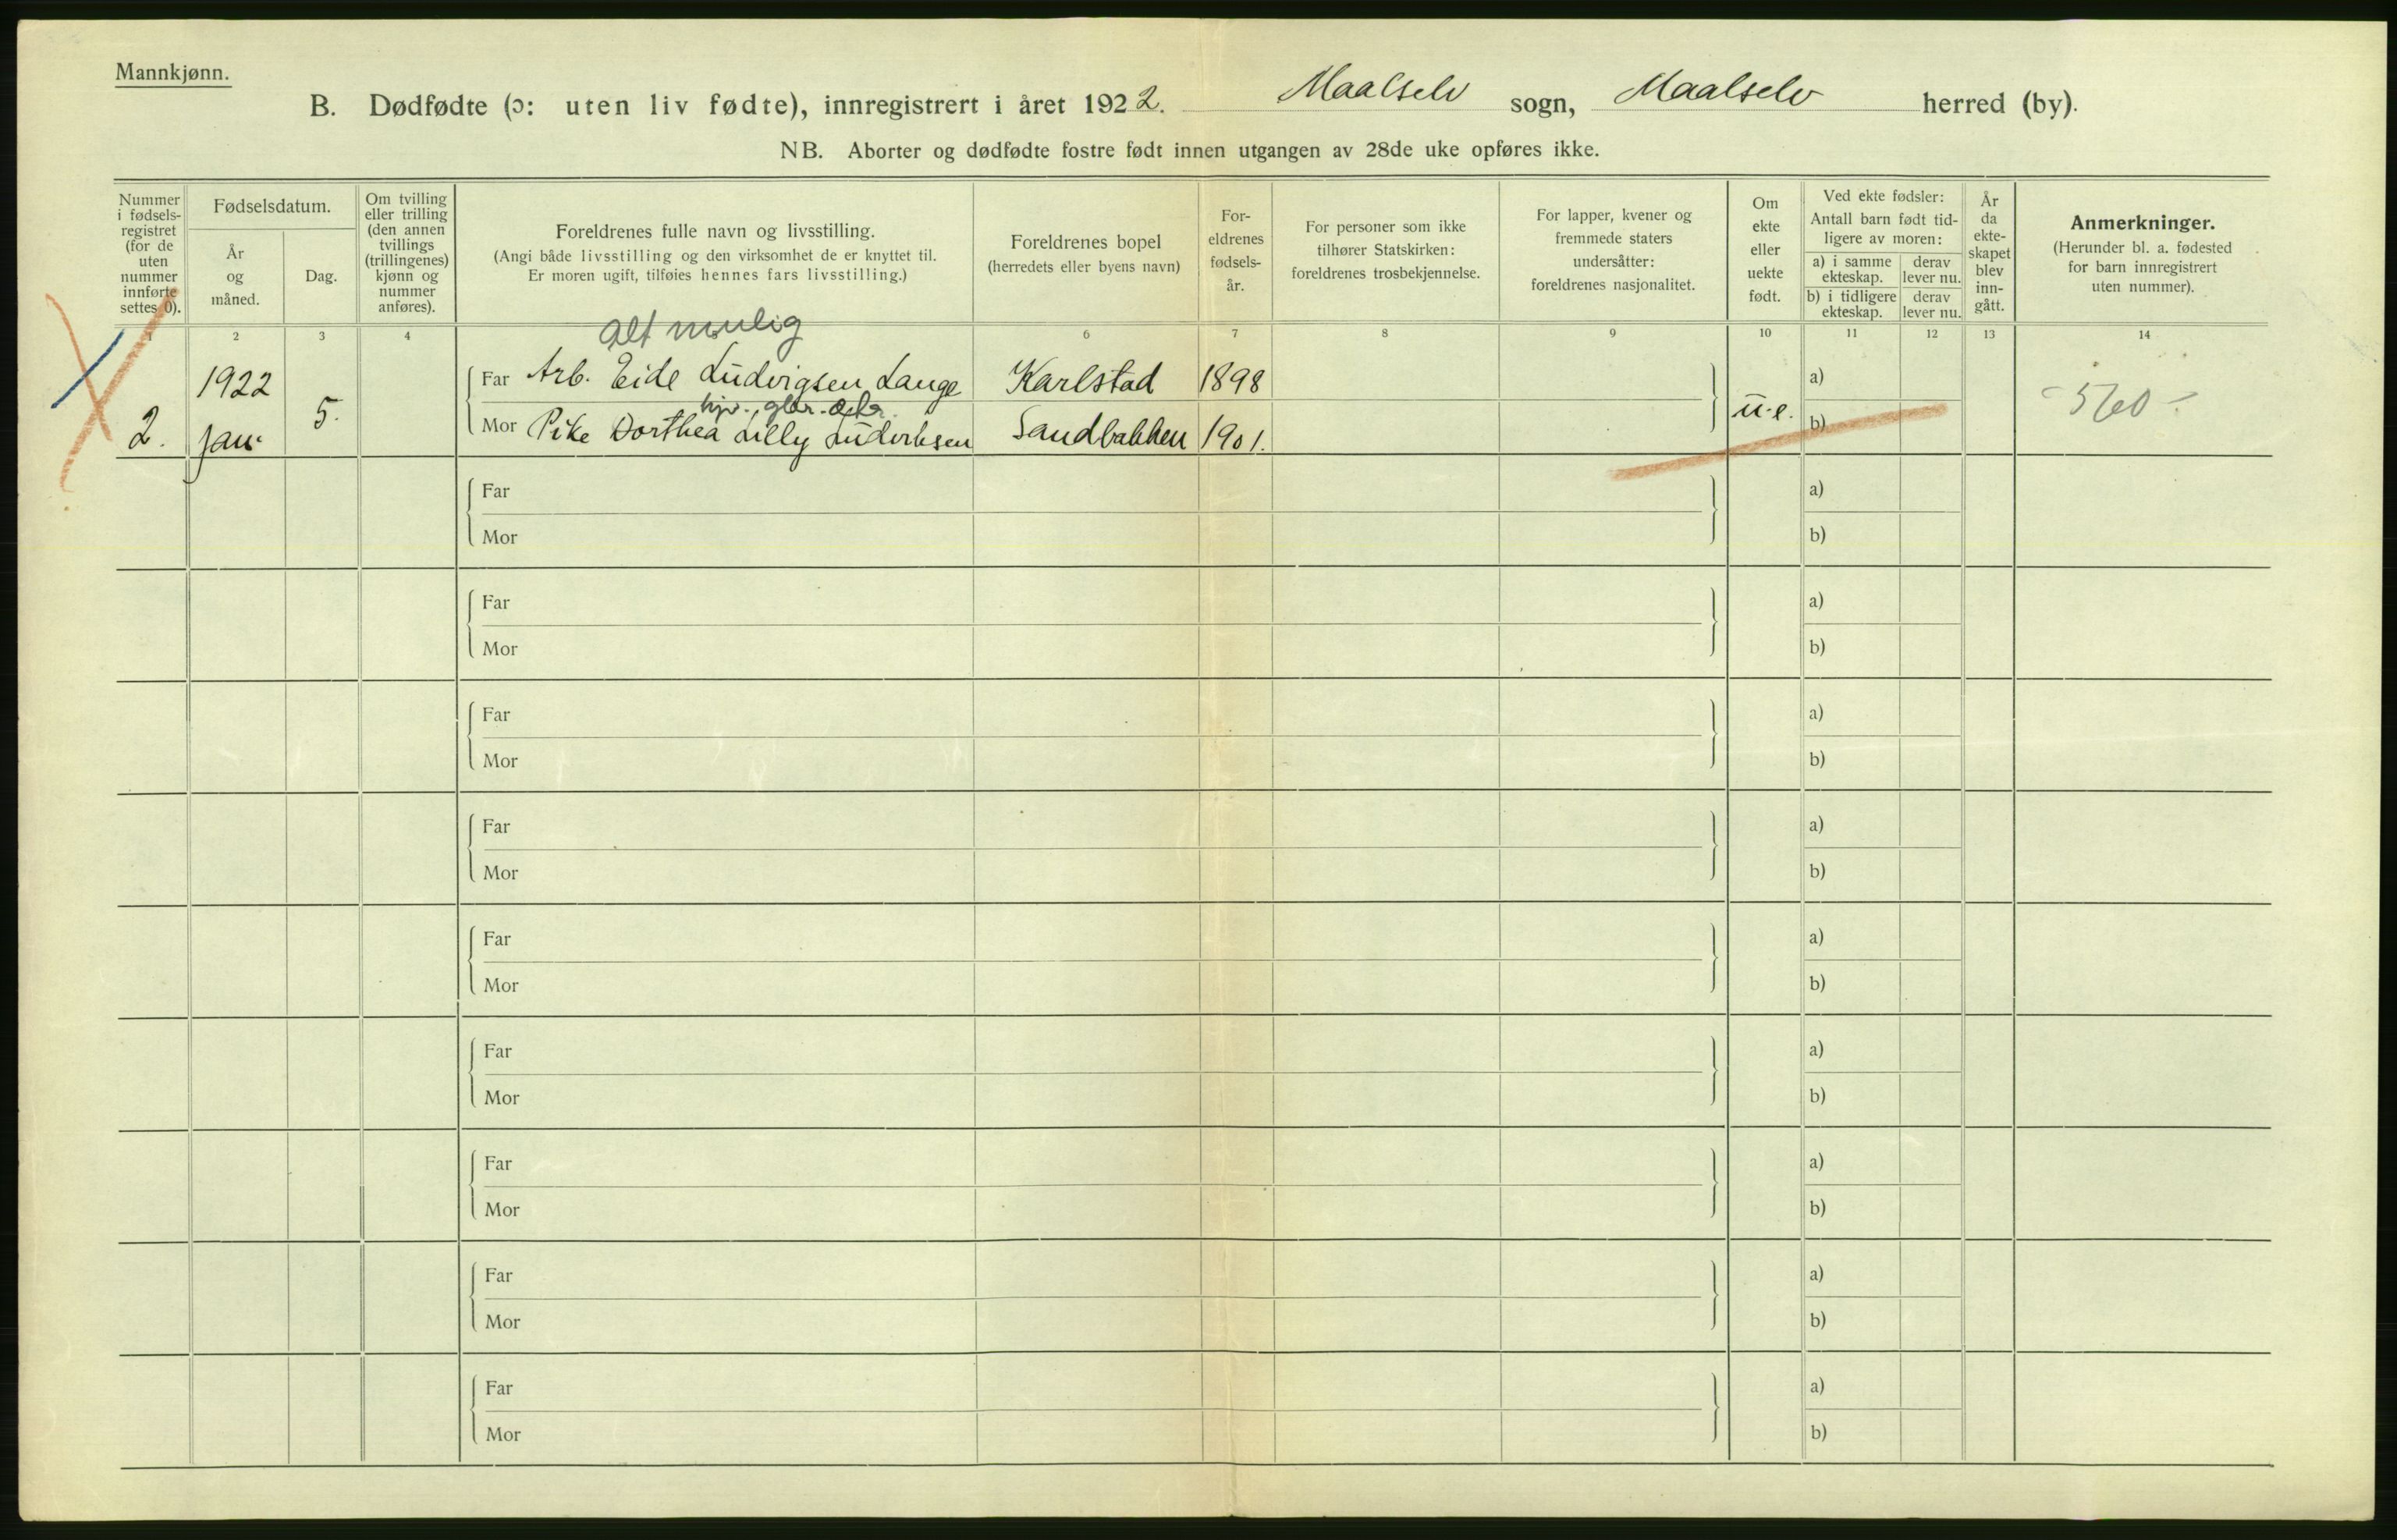 Mannkjønn.
B. Dødfødte (ɔ: uten liv fødte), innregistrert i året 1922. Maalselv sogn, Maalselv herred (by).
NB. Aborter og dødfødte fostre født innen utgangen av 28de uke opføres ikke.
Nummer i fødsels-registret (for de uten nummer innførte settes 0).
Fødselsdatum.
År og måned.
Dag.
Om tvilling eller trilling (den annen tvillings (trillingenes) kjønn og nummer anføres).
Foreldrenes fulle navn og livsstilling.
(Angi både livsstilling og den virksomhet de er knyttet til.
Er moren ugift, tilføies hennes fars livsstilling.)
Foreldrenes bopel
(herredets eller byens navn)
For-eldrenes fødsels-år.
For personer som ikke tilhører Statskirken: foreldrenes trosbekjennelse.
For lapper, kvener og fremmede staters undersåtter: foreldrenes nasjonalitet.
Om ekte eller uekte født.
Ved ekte fødsler:
Antall barn født tid-ligere av moren:
a) i samme ekteskap.
derav lever nu.
b) i tidligere ekteskap.
derav lever nu.
År da ekte-skapet blev inn-gått.
Anmerkninger.
(Herunder bl. a. fødested for barn innregistrert uten nummer).
1 2 3 4 6 7 8 9 10 11 12 13 14
alt mulig
1922 Far Arb. Eide Ludvigsen Lange Karlstad 1898 a)
hjv., gbr. datr.
2. jan. 5. Mor Pike Dorthea Lilly Ludvigsen Sandbakken 1901. u.e. b) - 560 -
Far a)
Mor b)
Far a)
Mor b)
Far a)
Mor b)
Far a)
Mor b)
Far a)
Mor b)
Far a)
Mor b)
Far a)
Mor b)
Far a)
Mor b)
Far a)
Mor b)